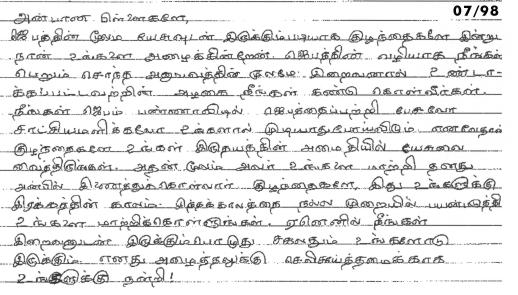 07/98
அன்பான பிள்ளைகளே,
ஜெபத்தின் மூலம் யேசுவுடன் இருக்கும்படியாக குழந்தைகளே இன்று
நான் உங்களை அழைக்கின்றேன். ஜெபத்தின் வழியாக நீங்கள்
பெறும் சொந்த அனுபவத்தின் மூலமே இறைவனால் உண்டா-
க்கப்பட்டவற்றின் அழகை நீங்கள் கண்டு கொள்வீர்கள்.
நீங்கள் ஜெபம் பண்ணாவிடில் ஜெபத்தைப்பற்றி பேசவோ
சாட்சியமளிக்கவோ உங்களால் முடியாதுபோய்விடும். எனவேதான்
குழந்தைகளே உங்கள் இருதயத்தின் அமைதியில் யேசுவை
வைத்திருங்கள். அதன் மூலம் அவர் உங்களை மாற்றி தனது
அன்பில் இணைத்துக்கொள்வார். குழந்தைகளே, இது உங்களுக்கு
இரக்கத்தின் காலம். இந்தக்காலத்தை நல்ல முறையில் பயன்படுத்தி
உங்களை மாற்றிக்கொள்ளுங்கள். ஏனெனில் நீங்கள்
இறைவனுடன் இருக்கும்பொழுது சகலதும் உங்களோடு
இருக்கும். எனது அழைத்தலுக்கு செவிசாய்த்தமைக்காக
உங்களுக்கு நன்றி!